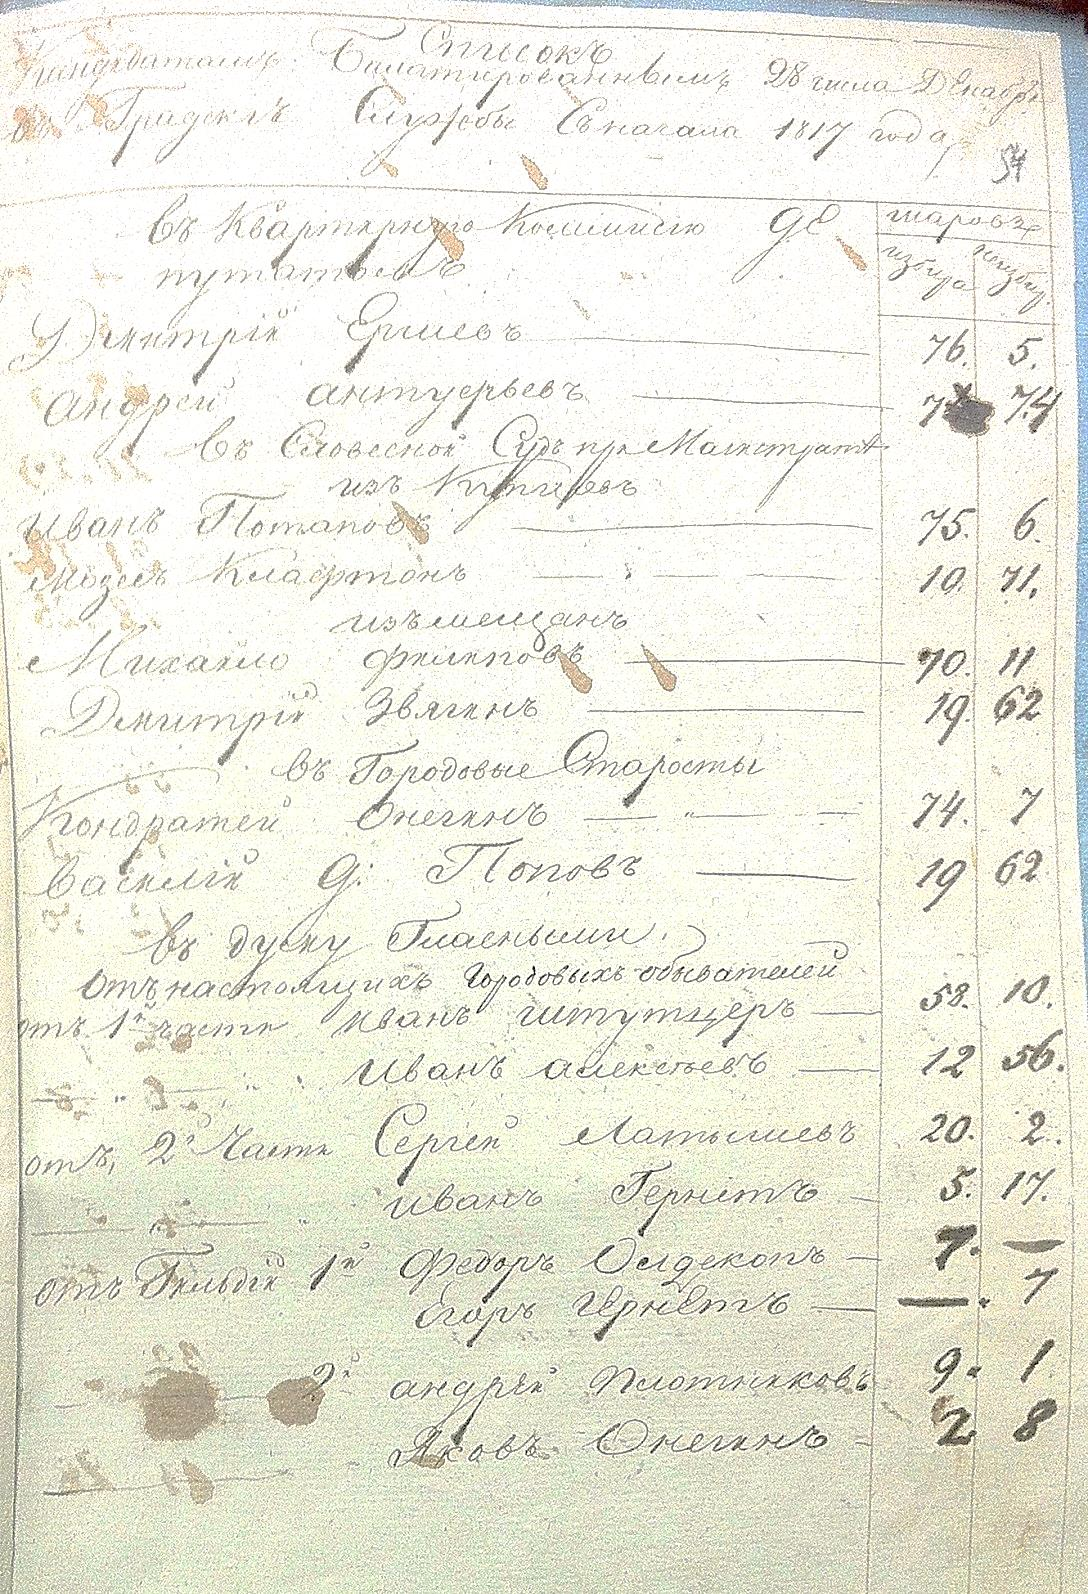 Списокъ
Кандидатамъ Балатированнымъ 28 числа Декабря
въ Градскія Службы Съ начала 1817 года
54
въ Квартирную Коммисію де
шаровъ
путатовъ
избира неизбир.
Дмитрій Ершевъ 76. 5.
Андрей 7 74
въ Словесной Судъ при Магистратѣ
изъ Купцовъ
Иванъ Потаповъ 75. 6.
Мозесъ Клафтонъ 10. 71.
изъ мещанъ
Михайло Филиповъ 70. 11
Дмитрій Звягинъ 19. 62
въ Городовые Старосты
Кондратей Онегинъ 74. 7
Василій д: Поповъ 19 62
въ думу Гласными
Отъ настоящихъ Городовыхъ обывателей
отъ 1й части Иванъ Штутцеръ 58. 10.
" Иванъ Алексѣевъ 12 56.
отъ, 2й Части Сергей Латышевъ 20. 2.
" " Иванъ Гернетъ 5. 17.
отъ Гильдій 1й Федоръ Олдекопъ 7. —
Егоръ Гернетъ — . 7
2й Андрей Плотниковъ 9. 1
Яковъ Онегинъ 2 8